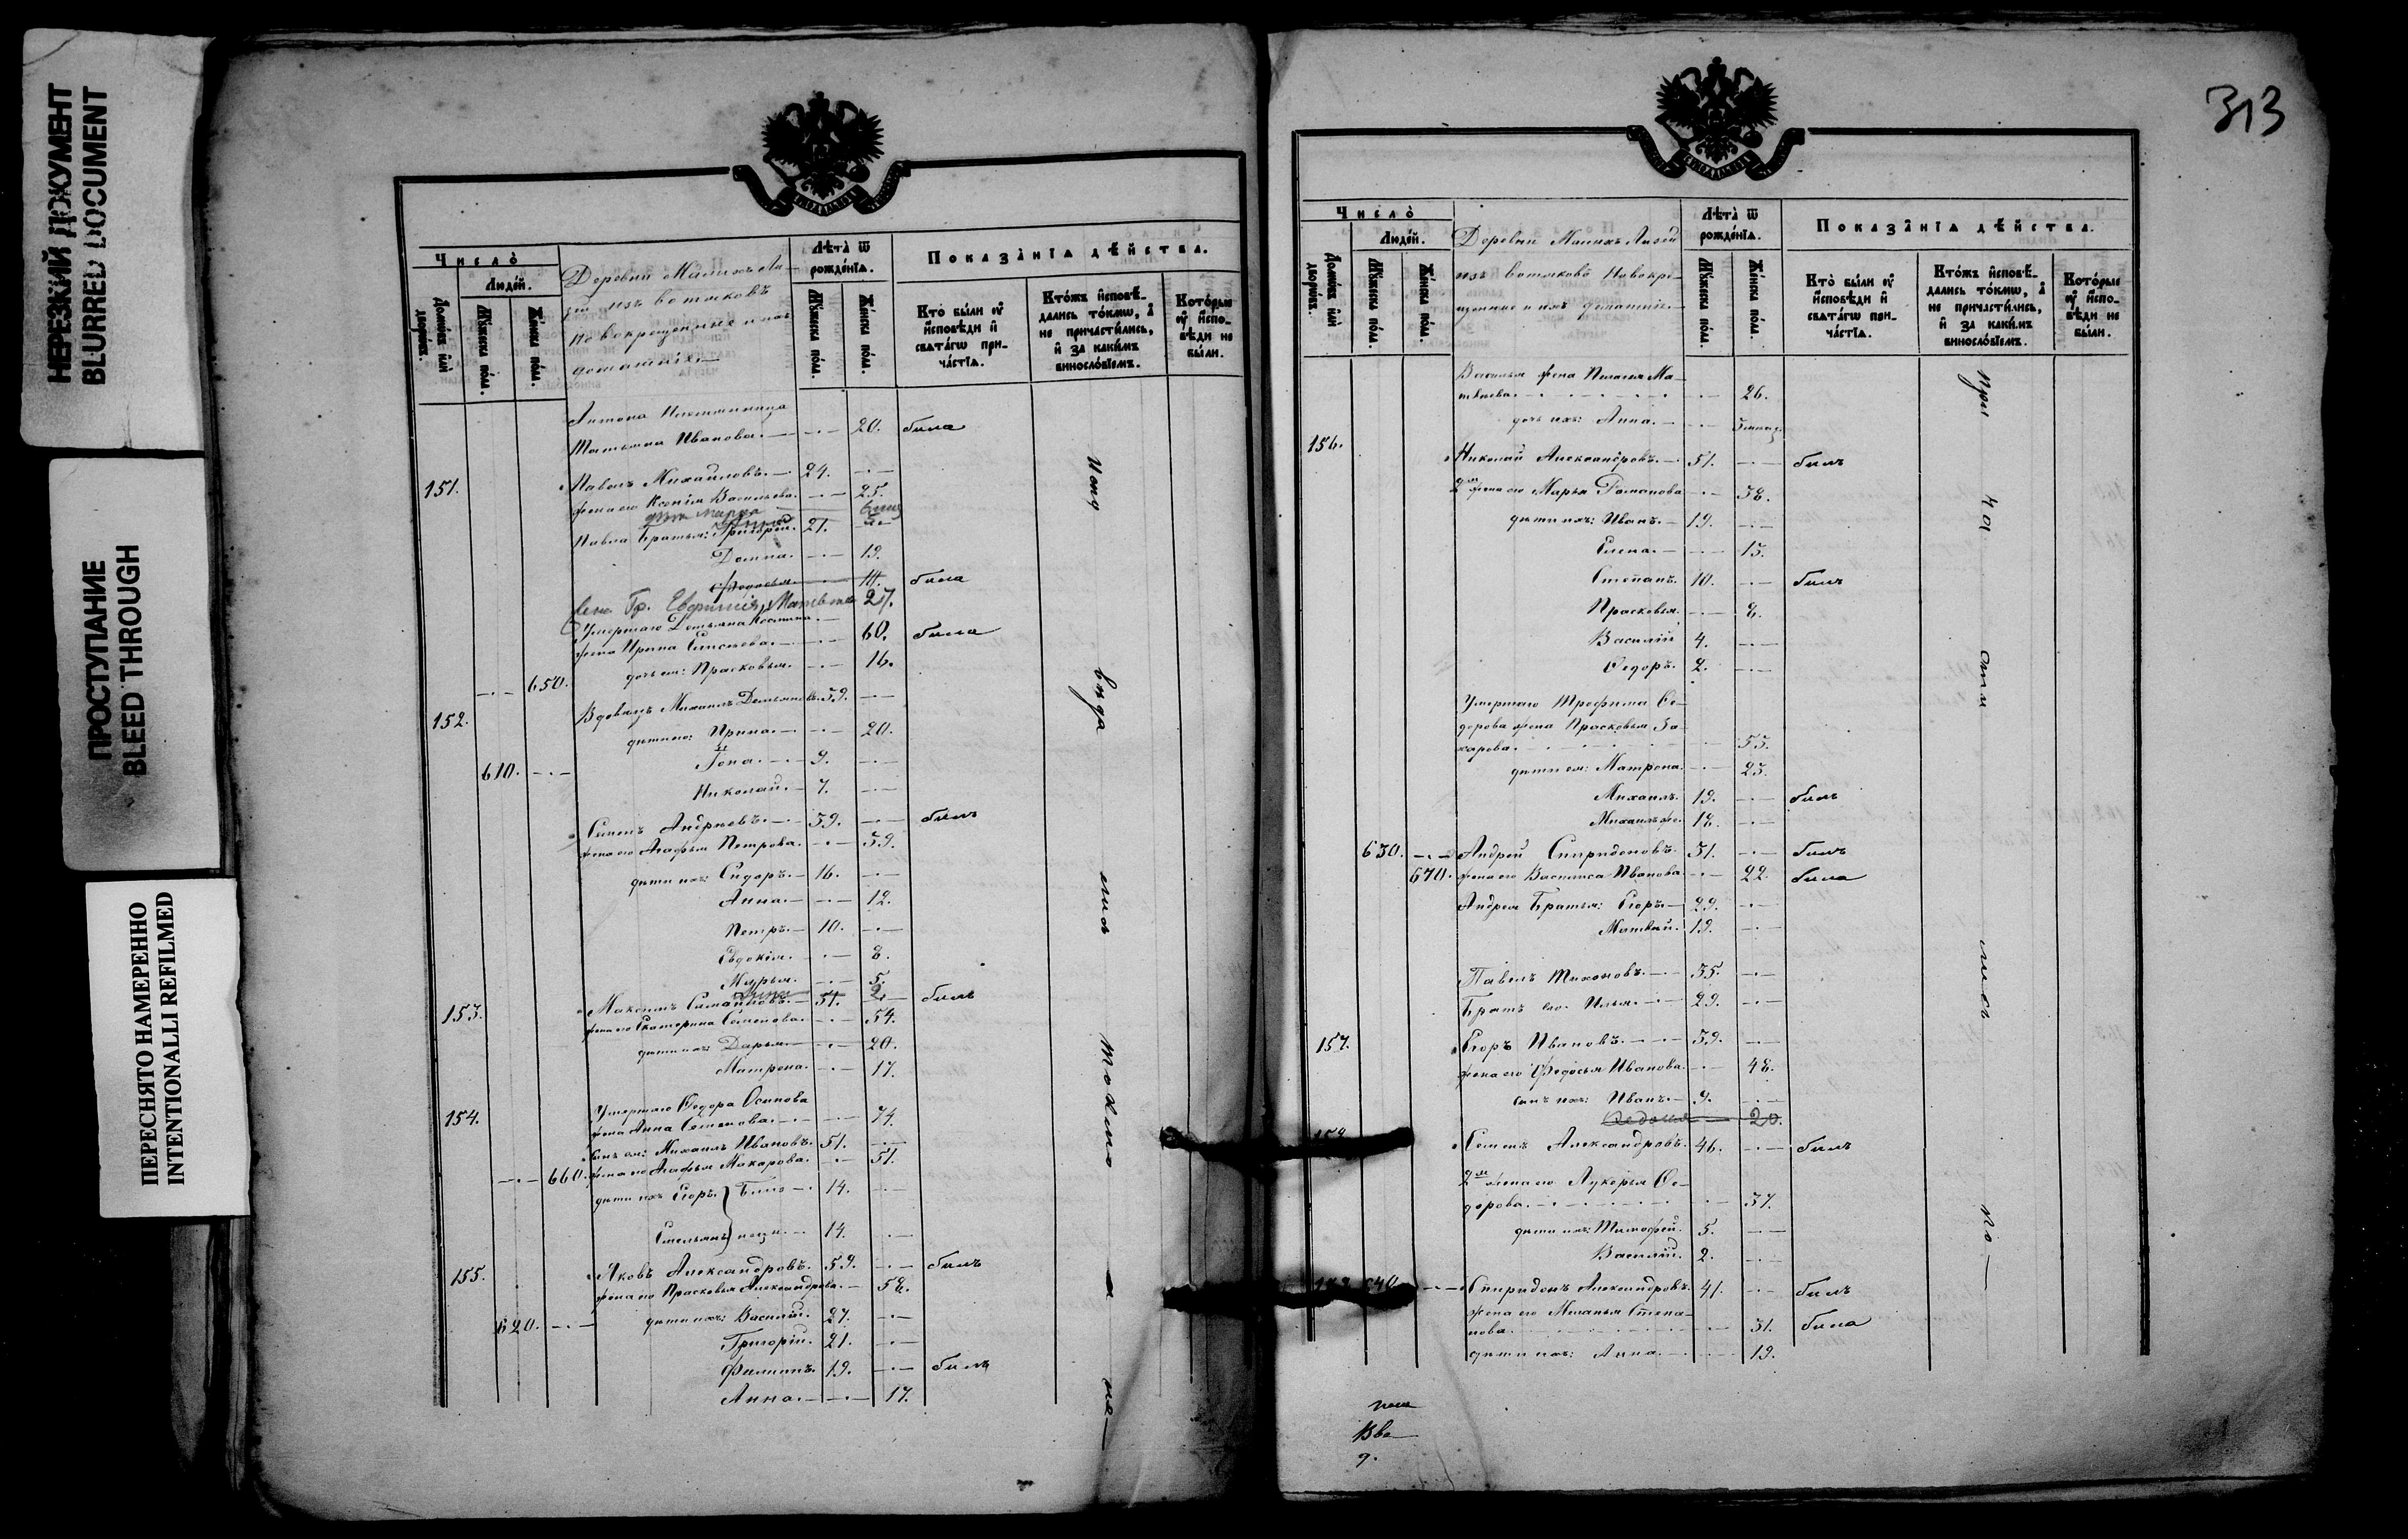 НЕРЕЗКИЙ ДОКУМЕНТ
BLURRED DOCUMENT
ПРОСТУПАНИЕ
BLEED THROUGH
ПЕРЕСНЯТО НАМЕРЕННО
INTENTIONALLI REFILMED
Число̀
Людéй.
Домѡ́въ и҆лѝ дворѡ́въ.
Мꙋ́жеска по́ла.
Же́нска по́ла.
Деревни Малыхъ Ли-
зи изъ вотяковъ
новокрещенные и ихъ
домашніе.
Лѣта̀ ѿ рожде́нїѧ.
Мꙋ́жеска по́ла.
Же́нска по́ла.
Показа̑нїѧ дѣ́йства.
Кто̀ бы́ли ᲂу҆ и҆сповѣди и҆ свѧта́гѡ при-ча́стїѧ.
Кто́жъ и҆сповѣ́-дались то́кмѡ, а҆ не причасти́лись, и҆ за каки́мъ винослóвїемъ.
Кото́рые ᲂу҆ и҆спо-вѣди не бы́ли.
Антона
Татьяна Иванова. 20. была
151. Павелъ Михайловъ. 24.
жена его Ксенія Васильева. 25.
Павла братья: Григорій. 21.
Домна. 19.
Федосья. была
Жена Гр. Евфимія Матвѣева 27.
Умершаго Демьяна
жена Ирина 60. была
650. дочь ея: Прасковья. 16.
152. Вдовецъ Михаилъ Демьяновъ. 39.
дѣти его: Ирина. 20.
610. Іона. 9.
Николай. 7.
Семенъ Андреевъ. 39. былъ
жена его Агафья Петрова. 39.
дѣти ихъ: Сидоръ. 16.
Анна. 12.
Петръ. 10.
Евдокія. 8.
Марья. 5.
153. Максимъ 51. былъ
жена его Екатерина Семенова. 54.
дѣти ихъ: Дарья. 20.
Матрена. 17.
154. Умершаго Ѳедора Осипова
жена Анна 74.
сынъ ея: Михаилъ Ивановъ. 51.
660. жена его Агафья Макарова. 51.
дѣти ихъ Егоръ } Близ- 14.
Емельянъ } нецы. 14.
155. Яковъ Александровъ. 59. былъ
жена его Прасковья Александрова. 58.
620. дѣти ихъ: Василій. 27.
Григорій. 21.
Филиппъ. 19. былъ
Анна. 17.
313
Число̀
Людéй.
Домѡ́въ и҆лѝ дворѡ́въ.
Мꙋ́жеска по́ла.
Же́нска по́ла.
Деревни Малыхъ Лизей
изъ вотяковъ новокре-
щенные и ихъ домашніе.
Лѣта̀ ѿ рожде́нїѧ.
Мꙋ́жеска по́ла.
Же́нска по́ла.
Показа̑нїѧ дѣ́йства.
Кто̀ бы́ли ᲂу҆ и҆сповѣди и҆ свѧта́гѡ при-ча́стїѧ.
Кто́жъ и҆сповѣ́-дались то́кмѡ, а҆ не причасти́лись, и҆ за каки́мъ винослóвїемъ.
Кото́рые ᲂу҆ и҆спо-вѣди не бы́ли.
Василья жена Пелагея Ма-
твѣева. 26.
дочь ихъ: Анна.
156. Николай Александровъ. 51. былъ
2я жена его Марья Романова 38.
дѣти ихъ: Иванъ. 19.
Елена. 15.
Степанъ. 10. былъ
Прасковья. 8.
Василій 4.
Ѳедоръ. 2.
Умершаго Трофима Ѳе-
дорова жена Прасковья За-
харова. 55.
дѣти ея: Матрена. 25.
Михаилъ. 19. былъ
Михаилъ же. 18.
630. Андрей Спиридоновъ. 31. былъ
670. жена его Василиса Иванова. 22. была
Андрея братья: Егоръ. 29.
Матвѣй. 19.
Павелъ Тихоновъ. 35.
Братъ его Илья. 29.
157. Егоръ Ивановъ. 39.
жена его Федосья Иванова. 48.
сынъ ихъ: Иванъ. 9.
20.
158. Семенъ Александровъ. 46. былъ
2я жена его Лукерья Ѳе-
дорова. 37.
дѣти ихъ: Тимофей. 5.
Василій. 2.
640. Спиридонъ Александровъ. 41. былъ
жена его Меланья Степа-
нова. 31. была
дѣти ихъ: Анна. 19.